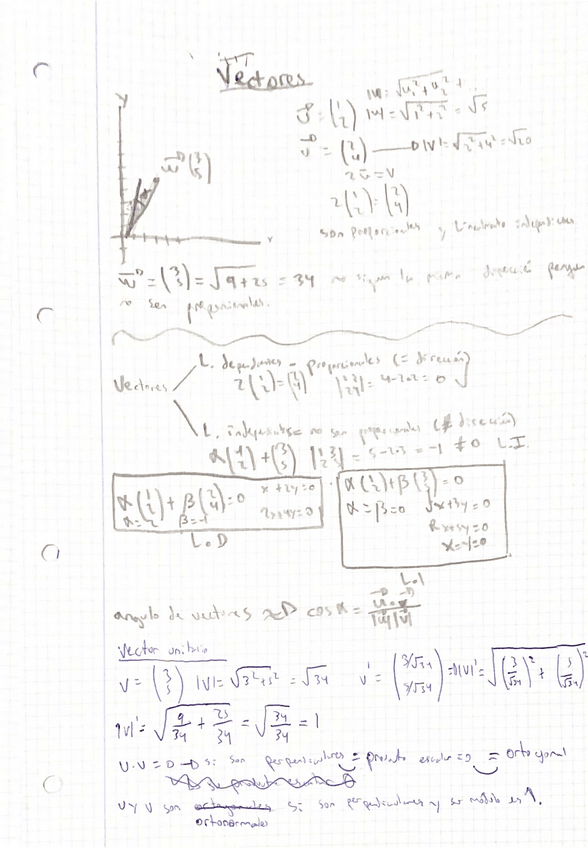 Vectores
y
|u| = √(u₁² + u₂²)
u = (1 2) |u| = √(1² + 2²) = √5
v = (2 4) → |v| = √(2² + 4²) = √20
2u = v
w (3 5)
2 (1 2) = (2 4)
son proporcionales y
x
w = (3 5) = √(9+25) = 34 no siguen la misma dirección
no son proporcionales.
L. dependientes - proporcionales (= dirección)
Vectores
2 (1 2) = (2 4) |1 2 2 4| = 4-2·2 = 0
L. independientes no son proporcionales (≠ dirección)
α (1 2) + (3 5) |1 3 2 5| = 5-2·3 = -1 ≠ 0 L.I.
α (1 2) + β (2 4) = 0 x + 2y = 0
α = 2 β = -1 2x + 4y = 0
L.D
α (1 2) + β (3 5) = 0
α = β = 0 x + 3y = 0
2x + 5y = 0
x = y = 0
L.I
angulo de vectores → cos α = u · v / |u| |v|
Vector unitario
v = (3 5) |v| = √(3² + 5²) = √34 v' = (3/√34 5/√34) → |v|' = √((3/√34)² + (5/√34)²)
|v|' = √(9/34 + 25/34) = √(34/34) = 1
u · v = 0 → si son perpendiculares = producto escalar = 0 = ortogonal
u y v son ortogonales si son perpendiculares y su módulo es 1.
ortonormales